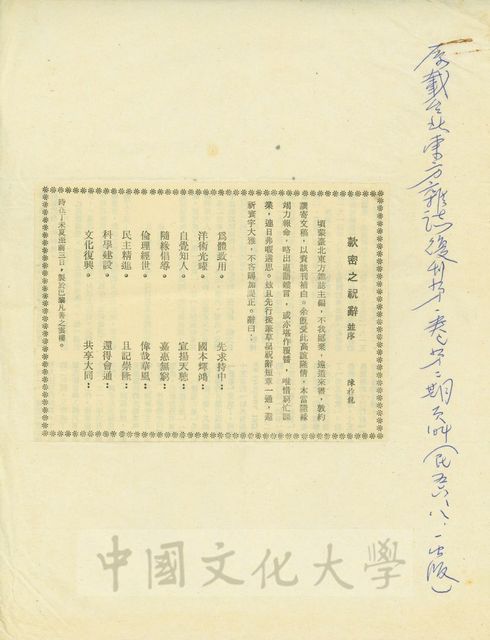 原載台北東方雜誌復刊第一卷第二期頁（民五六、八、一出版）
款密之祝辭 並序
陳祚龍
頃蒙臺北東方雜誌主編，不我鄙棄，遠道來書，敦約
讚寄文稿，以實該刊補白。余既受此高誼隆情，本當隨緣
竭力報命，略出蕪語嚖言，或亦堪作覆醬，唯惜窮忙課
業，連日弗暇選思。茲且先行援筆草是祝辭短章一通，還
祈寰宇大雅，不吝賜加諟正。辭曰：
爲體致用，先求持中；
洋術光曜，國本煇鴻；
自覺知人，宣揚天聰；
隨緣倡導，嘉惠無窮；
倫理經世，偉哉華風；
民主精進，且記崇隆；
科學建設，還得會通；
文化復興，共享大同；
時在丁未夏至前三日，製於巴黎凡善之雲樓。
中國文化大學